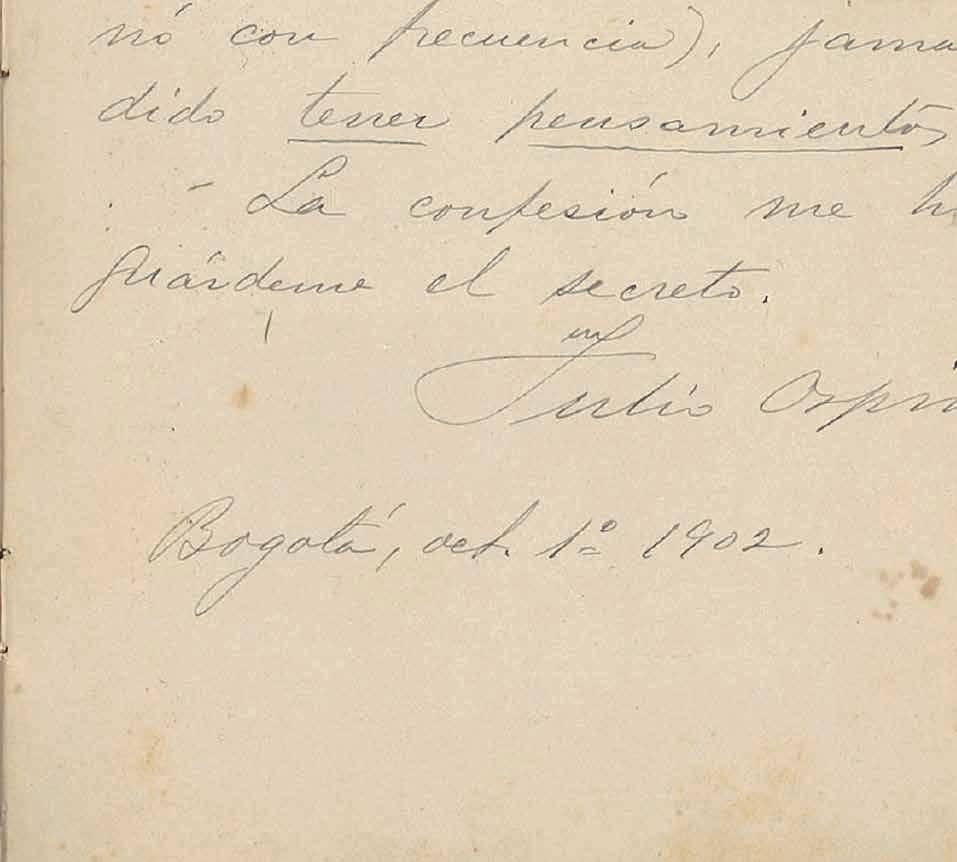 nó con frecuencia), jama
dido tener pensamientos
- La confesión me h
guárdeme el secreto.
Tulio Ospi
Bogotá, oct. 1º 1902.